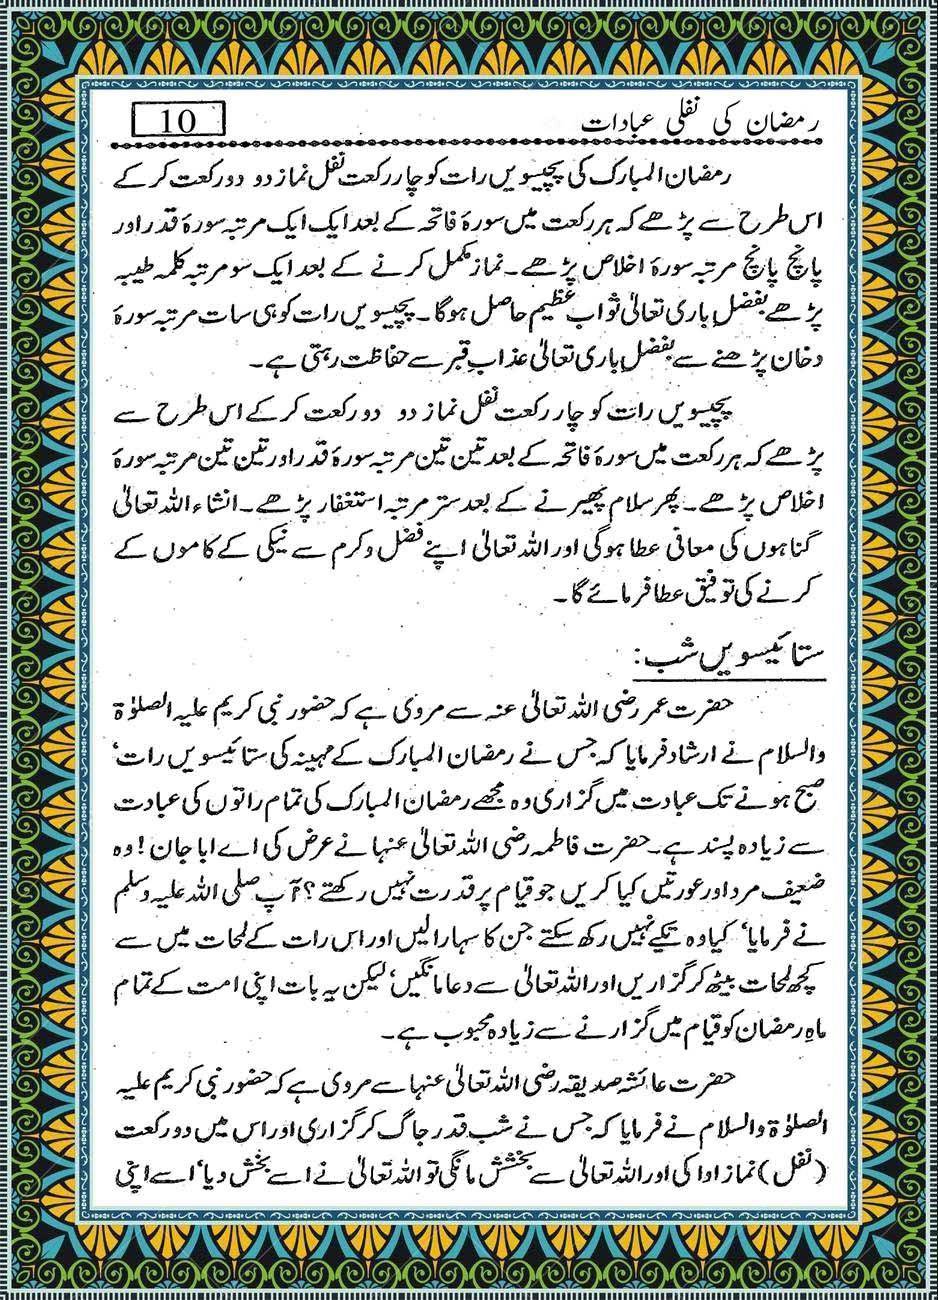 رمضان کی نفلی عبادات
10
رمضان المبارک کی پچیسویں رات کو چار رکعت نفل نماز دو دو رکعت کر کے
اس طرح سے پڑھے کہ ہر رکعت میں سورۃ فاتحہ کے بعد ایک ایک مرتبہ سورۃ قدر اور
پانچ پانچ مرتبہ سورۃ اخلاص پڑھے۔ نماز مکمل کرنے کے بعد ایک سو مرتبہ کلمہ طیبہ
پڑھے بفضل باری تعالیٰ ثواب عظیم حاصل ہوگا۔ پچیسویں رات کو ہی سات مرتبہ سورۃ
دخان پڑھنے سے بفضل باری تعالیٰ عذاب قبر سے حفاظت رہتی ہے۔
پچیسویں رات کو چار رکعت نفل نماز دو دو رکعت کر کے اس طرح سے
پڑھے کہ ہر رکعت میں سورۃ فاتحہ کے بعد تین تین مرتبہ سورۃ قدر اور تین تین مرتبہ سورۃ
اخلاص پڑھے۔ پھر سلام پھیرنے کے بعد ستر مرتبہ استغفار پڑھے۔ انشاء اللہ تعالیٰ
گناہوں کی معافی عطا ہوگی اور اللہ تعالیٰ اپنے فضل وکرم سے نیکی کے کاموں کے
کرنے کی توفیق عطا فرمائے گا۔
ستائیسویں شب:
حضرت عمر رضی اللہ تعالیٰ عنہ سے مروی ہے کہ حضور نبی کریم علیہ الصلوٰۃ
والسلام نے ارشاد فرمایا کہ جس نے رمضان المبارک کے مہینہ کی ستائیسویں رات،
صبح ہونے تک عبادت میں گزاری وہ مجھے رمضان المبارک کی تمام راتوں کی عبادت
سے زیادہ پسند ہے۔ حضرت فاطمہ رضی اللہ تعالیٰ عنہا نے عرض کی اے ابا جان! وہ
ضعیف مرد اور عورتیں کیا کریں جو قیام پر قدرت نہیں رکھتے؟ آپ صلی اللہ علیہ وسلم
نے فرمایا، کیا وہ تکیے نہیں رکھ سکتے جن کا سہارا لیں اور اس رات کے لمحات میں سے
کچھ لمحات بیٹھ کر گزاریں اور اللہ تعالیٰ سے دعا مانگیں، لیکن یہ بات اپنی امت کے تمام
ماہِ رمضان کو قیام میں گزارنے سے زیادہ محبوب ہے۔
حضرت عائشہ صدیقہ رضی اللہ تعالیٰ عنہا سے مروی ہے کہ حضور نبی کریم علیہ
الصلوٰۃ والسلام نے فرمایا کہ جس نے شب قدر جاگ کر گزاری اور اس میں دو رکعت
(نفل) نماز ادا کی اور اللہ تعالیٰ سے بخشش مانگی تو اللہ تعالیٰ نے اسے بخش دیا، اسے اپنی